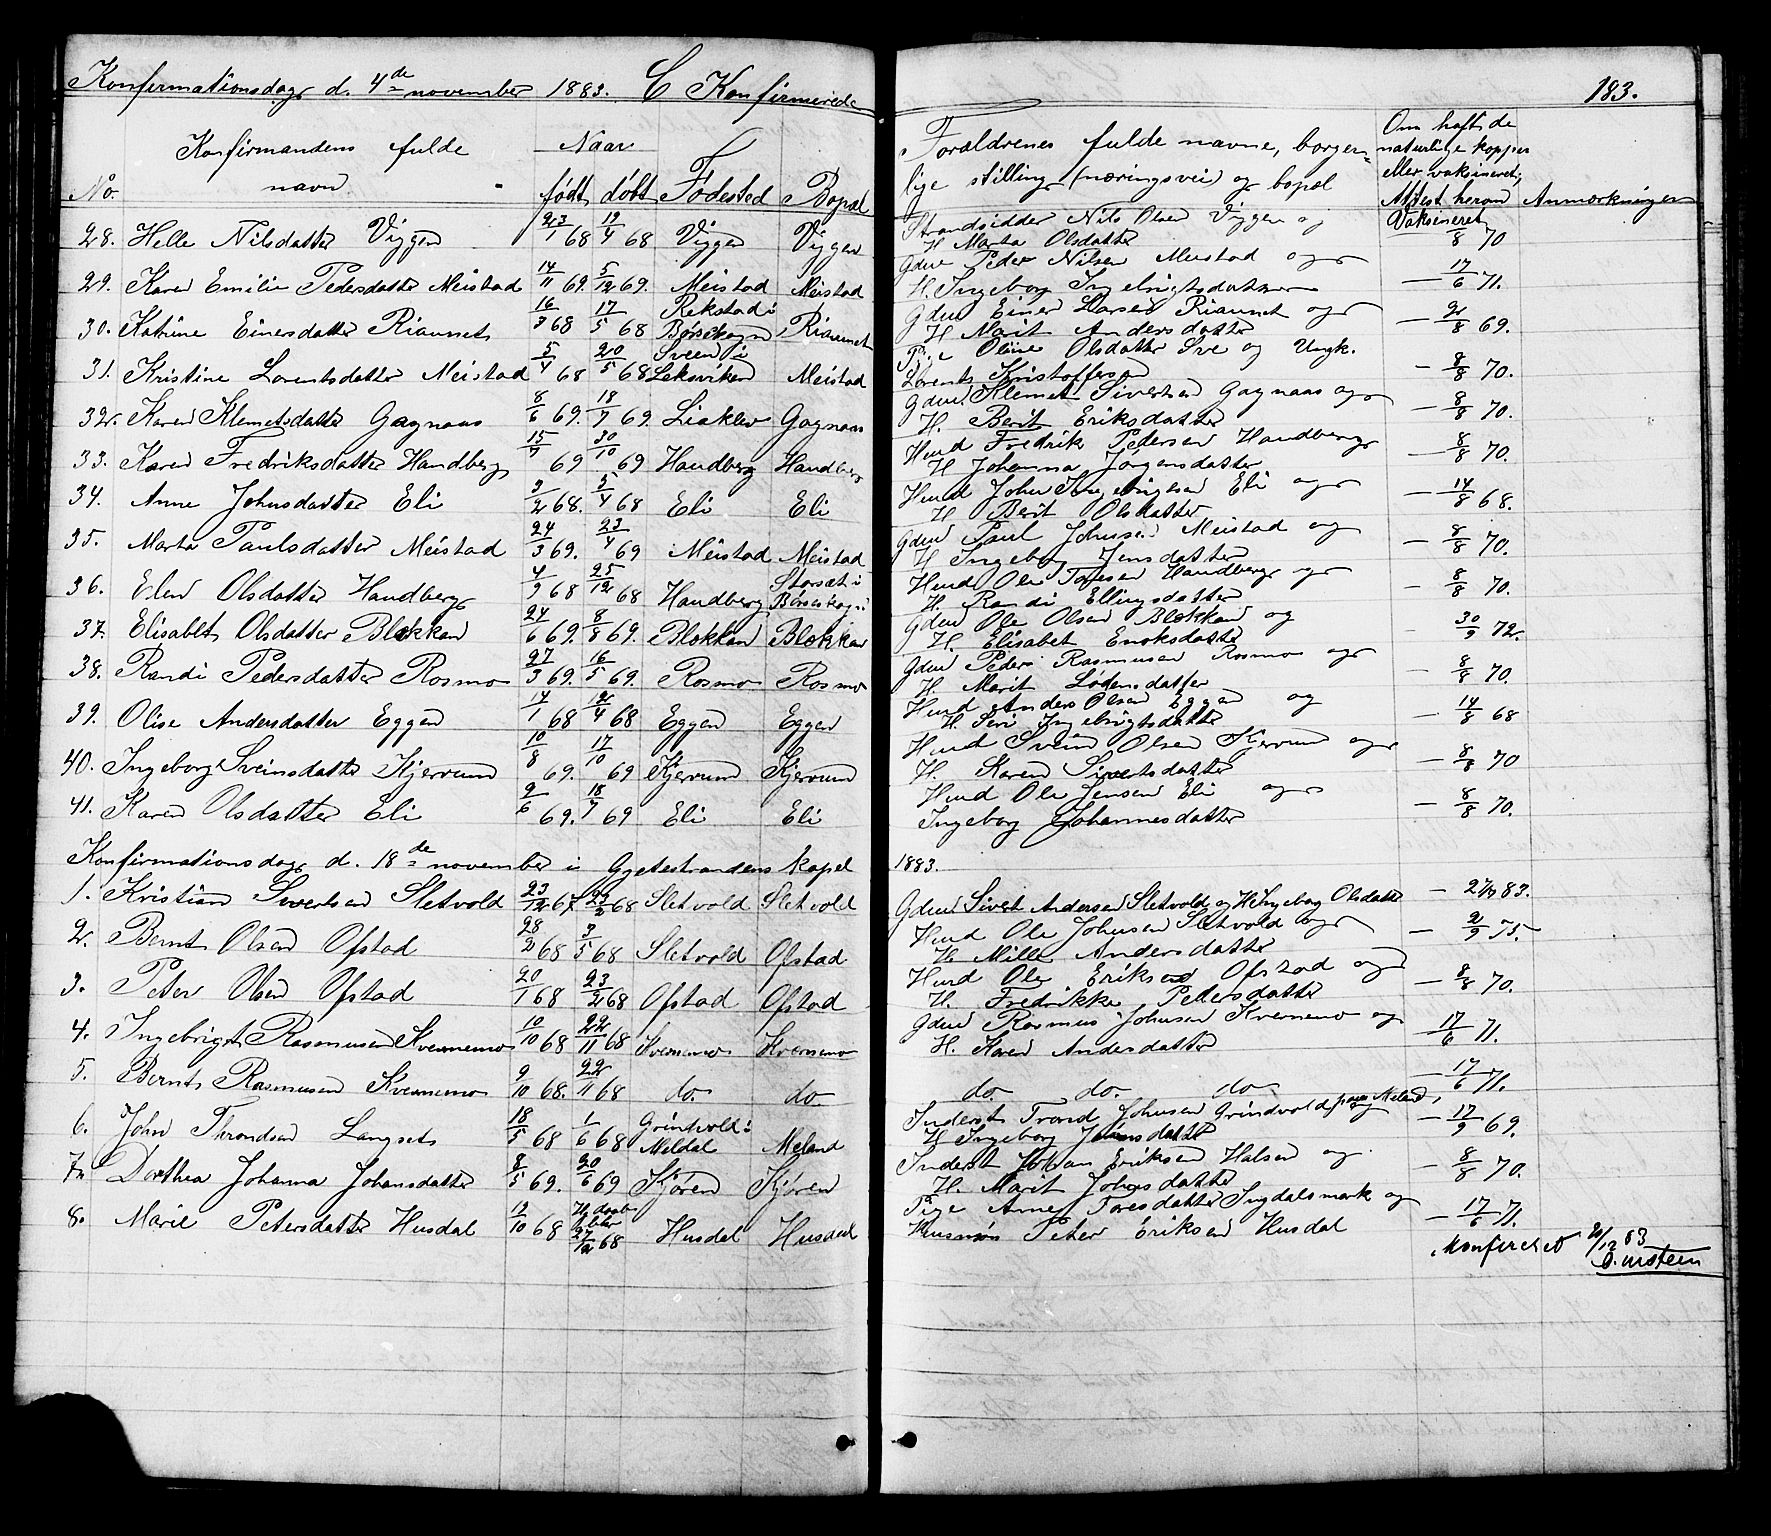 Konfirmationsdag d. 4de november 1883. C Konfirmerede 183.
No. Konfirmandens fulde navn Naar født døbt Fødested Bopæl Forældrenes fulde navne, borgerlige stilling (næringsvei) og bopæl Om haft de naturlige kopper eller vaksineret, Attest herom Anmærkninger
28. Helle Nilsdatter Viggen 23/1 68 12/4 68 Viggen Viggen Strandsidder Nils Olsen Viggen og H. Marta Olsdatter Vaksineret 8/8 70
29. Karen Emilie Pedersdatter Meistad 14/11 69. 5/12 69. Meistad Meistad Gdmd Peder Nilsen Meistad og H. Ingeborg Ingebrigtsdatter — 17/6 71.
30. Katrine Einersdatter Riaunet 16/3 68 17/5 68 Rekstad i Børseskogn Riaunet Gdmd Einer Larsen Riaunet og H. Marit Andersdatter — 2/8 69.
31. Kristine Lorentsdatter Meistad 5/4 68 20/5 68 Sveen i Leksviken Meistad Pige Oline Olsdatter Sve og Ungk. Lorents Kristoffersen — 8/8 70.
32. Karen Klemetsdatter Gagnaas 8/6 69. 18/7 69. Liaklev Gagnaas Gdmd Klemet Sivertsen Gagnaas og H. Berit Eriksdatter — 8/8 70.
33. Karen Fredriksdatter Handberg 15/9 69 30/10 69 Handberg Handberg Husmd Fredrik Pedersen Handberg H. Johanna Jørgensdatter — 8/8 70.
34. Anne Johnsdatter Eli 9/2 68. 5/4 68 Eli Eli Husmd John Ingebrigtsen Eli og H. Berit Olsdatter — 14/8 68.
35. Marta Paulsdatter Meistad 24/3 69. 23/4 69 Meistad Meistad Gdmd Paul Johnsen Meistad og H. Ingeborg Jensdatter — 8/8 70.
36. Elen Olsdatter Handberg 4/9 68 25/12 68 Handberg Storsæt i Børseskogn Husmd Ole Toresen Handberg og H. Randi Ellingsdatter — 8/8 70.
37. Elisabet Olsdatter Blokkan 24/6 69. 8/8 69. Blokkan Blokkan Gdmd Ole Olsen Blokkan og H. Elisabet Enoksdatter — 30/9 72.
38. Randi Pedersdatter Rosmo 27/3 69. 16/5 69. Rosmo Rosmo Gdmd Peder Rasmusen Rosmo og H. Marit Lødensdatter — 8/8 70.
39. Olise Andersdatter Eggen 14/1 68 12/4 68 Eggen Eggen Husmd Anders Olsen Eggen og H. Seri Ingebrigtsdatter — 14/8 68
40. Ingeborg Sveinsdatter Kjervum 10/8 69. 17/10 69 Kjervum Kjervum Husmd Svein Olsen Kjervum og H. Karen Sivertsdatter — 8/8 70
41. Karen Olsdatter Eli 9/6 69. 18/7 69 Eli Eli Husmd Ole Jensen Eli og Ingeborg Johannesdatter — 8/8 70.
Konfirmationsdag d. 18de november i Gjetestrandens kapel 1883.
1. Kristian Sivertsen Sletvold 23/12 67 23/2 68 Sletvold Sletvold Gdmd Sivert Andersen Sletvold og H. Ingeborg Olsdatter — 83.
2. Bernt Olsen Ofstad 28/2 68 3/5 68 Sletvold Ofstad Husmd Ole Johnsen Sletvold og H. Mille Andersdatter — 2/9 75.
3. Peter Olsen Ofstad 20/1 68 23/2 68 Ofstad Ofstad Husmd Ole Eriksen Ofstad og H. Fredrikke Petersdatter — 8/8 70.
4. Ingebrigt Rasmusen Kvernemo 10/10 68 22/11 68 Kvernemo Kvernemo Gdmd Rasmus Johnsen Kvernemo og H. Karen Andersdatter — 17/6 71.
5. Bernt Rasmusen Kvernemo 9/10 68. 22/11 68 do. do do. do. do — 17/6 71.
6. John Throndsen Langset 18/5 68 1/6 68 Grindvold i Meldal Meland Inderst Trond Johnsen Grindvold, paa Meland, og H. Ingeborg Johnsdatter — 17/9 69.
7. Dorthea Johanna Johansdatter 8/5 69. 20/6 69 Kjøren Kjøren Inderst Johan Eriksen Halsen og H. Marit Johnsdatter — 8/8 70.
8. Marie Petersdatter Husdal 12/10 68 Hj. døbt 27/12 68 Husdal Husdal Pige Arne Toresdatter Ingdalsmark og Husmds Peter Eriksen Husdal — 17/6 71.
Konfereret /12 83